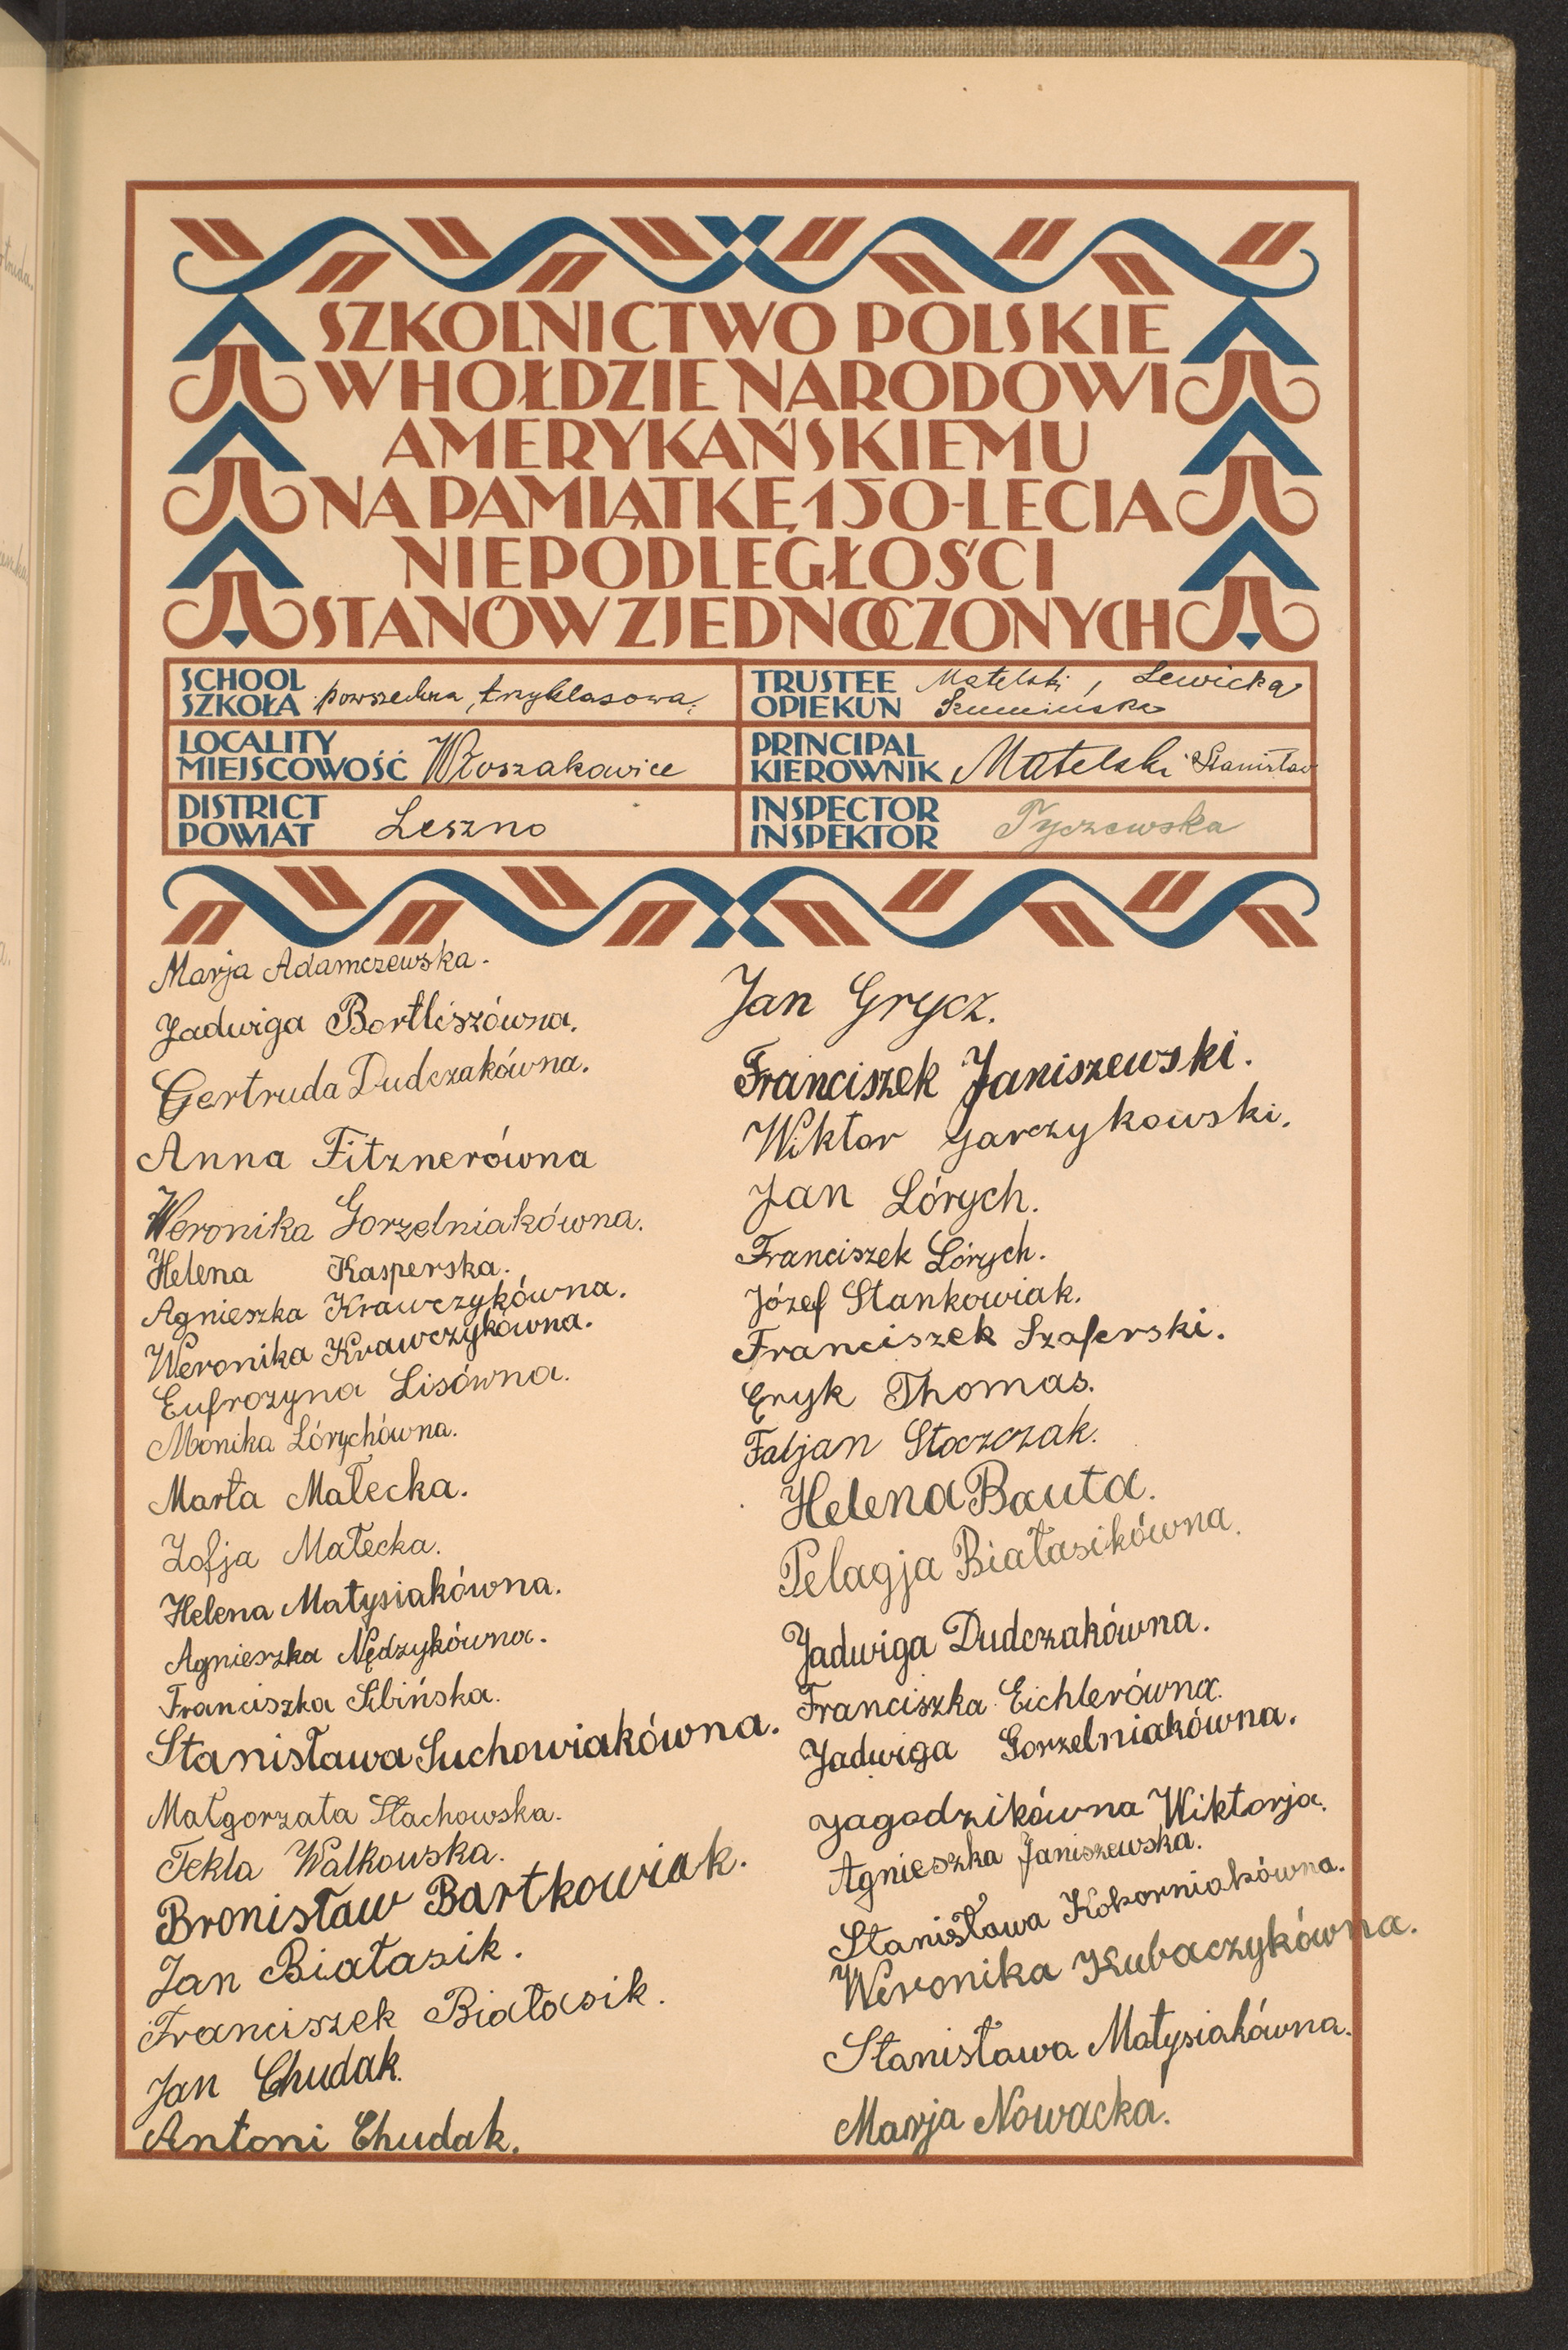 SZKOLNICTWO POLSKIE
W HOŁDZIE NARODOWI
AMERYKAŃSKIEMU
NA PAMIĄTKĘ 150-LECIA
NIEPODLEGŁOŚCI
STANÓW ZJEDNOCZONYCH
SCHOOL
SZKOŁA powszechna, trzyklasowa.
TRUSTEE Matelski, Lewicka
OPIEKUN
LOCALITY
MIEJSCOWOŚĆ Włoszakowice
PRINCIPAL
KIEROWNIK Matelski Stanisław
DISTRICT
POWIAT Leszno
INSPECTOR
INSPEKTOR Tyczewska
Marja Adamczewska.
Jadwiga Bortliszówna.
Gertruda Dudczakówna.
Anna Fitznerówna
Weronika Gorzelniakówna.
Helena Kasperska.
Agnieszka Krawczykówna.
Weronika Krawczykówna.
Eufrozyna Lisówna.
Monika Lórychówna.
Marta Małecka.
Zofja Małecka.
Helena Matysiakówna.
Agnieszka Nędzykówna.
Franciszka Slbińska.
Stanisława Suchowiakówna.
Małgorzata Stachowska.
Tekla Walkowska.
Bronisław Bartkowiak.
Jan Białasik.
Franciszek Białasik.
Jan Chudak.
Antoni Chudak.
Jan Grycz.
Franciszek Janiszewski.
Wiktor Jarczykowski.
Jan Lórych.
Franciszek Lórych.
Józef Stankowiak.
Franciszek Szaferski.
Eryk Thomas.
Fabjan Stoczczak.
Helena Bauta.
Pelagja Białasikówna.
Jadwiga Dudczakówna.
Franciszka Eichlerówna.
Jadwiga Gorzelniakówna.
Jagodzikówna Wiktorja.
Agnieszka Janiszewska.
Stanisława Kokorniakówna.
Weronika Kubaczykówna.
Stanisława Matysiakówna.
Marja Nowacka.